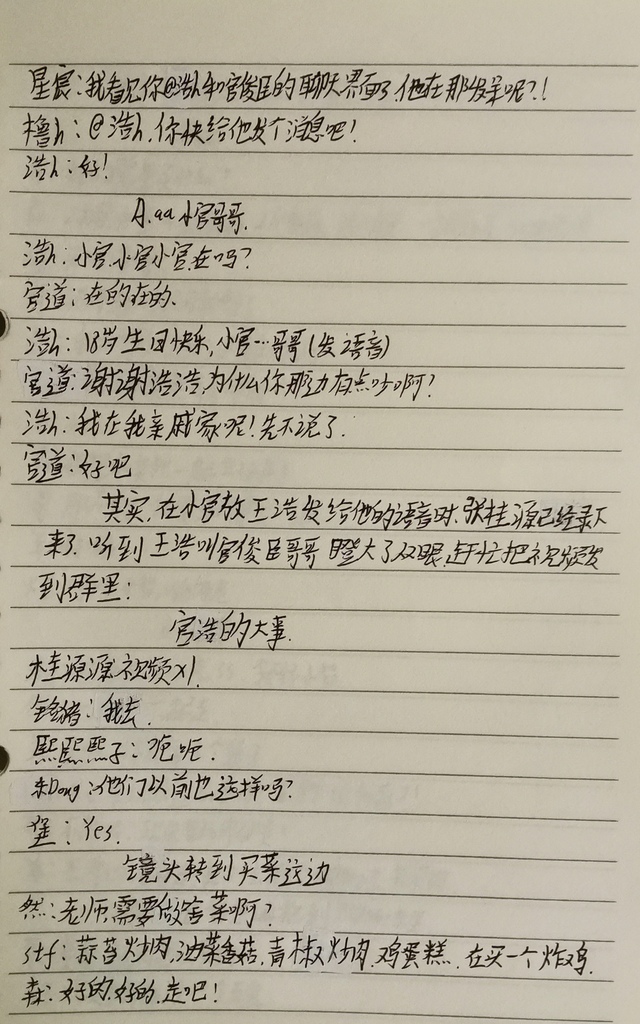 星宸:我看见你@浩h和官俊臣的聊天界面了.他在那发呆呢?!
橹h:@浩h,你快给他发个消息吧!
浩h:好!
A.aa小官哥哥.
浩h:小官.小官小官.在吗?
官道:在的在的、
浩h:18岁生日快乐,小官…哥哥(发语音)
官道:谢谢浩浩,为什么你那边有点吵啊?
浩h:我在我亲戚家呢!先不说了.
官道:好吧
其实,在小官放王浩发给他的语音时、张桂源已经录下
来了.听到王浩叫官俊臣哥哥瞪大了双眼,赶忙把视频发
到群里:
官浩的大事.
桂源源:视频x1.
猪:我去.
熙熙熙子:呃呃.
东Dong:他们以前也这样吗?
堡:Yes.
镜头转到买菜这边
然:老师,需要做啥菜啊?
stf:蒜苔炒肉,油菜香菇,青椒炒肉.鸡蛋糕.在买一个炸鸡.
森:好的.好的.走吧!